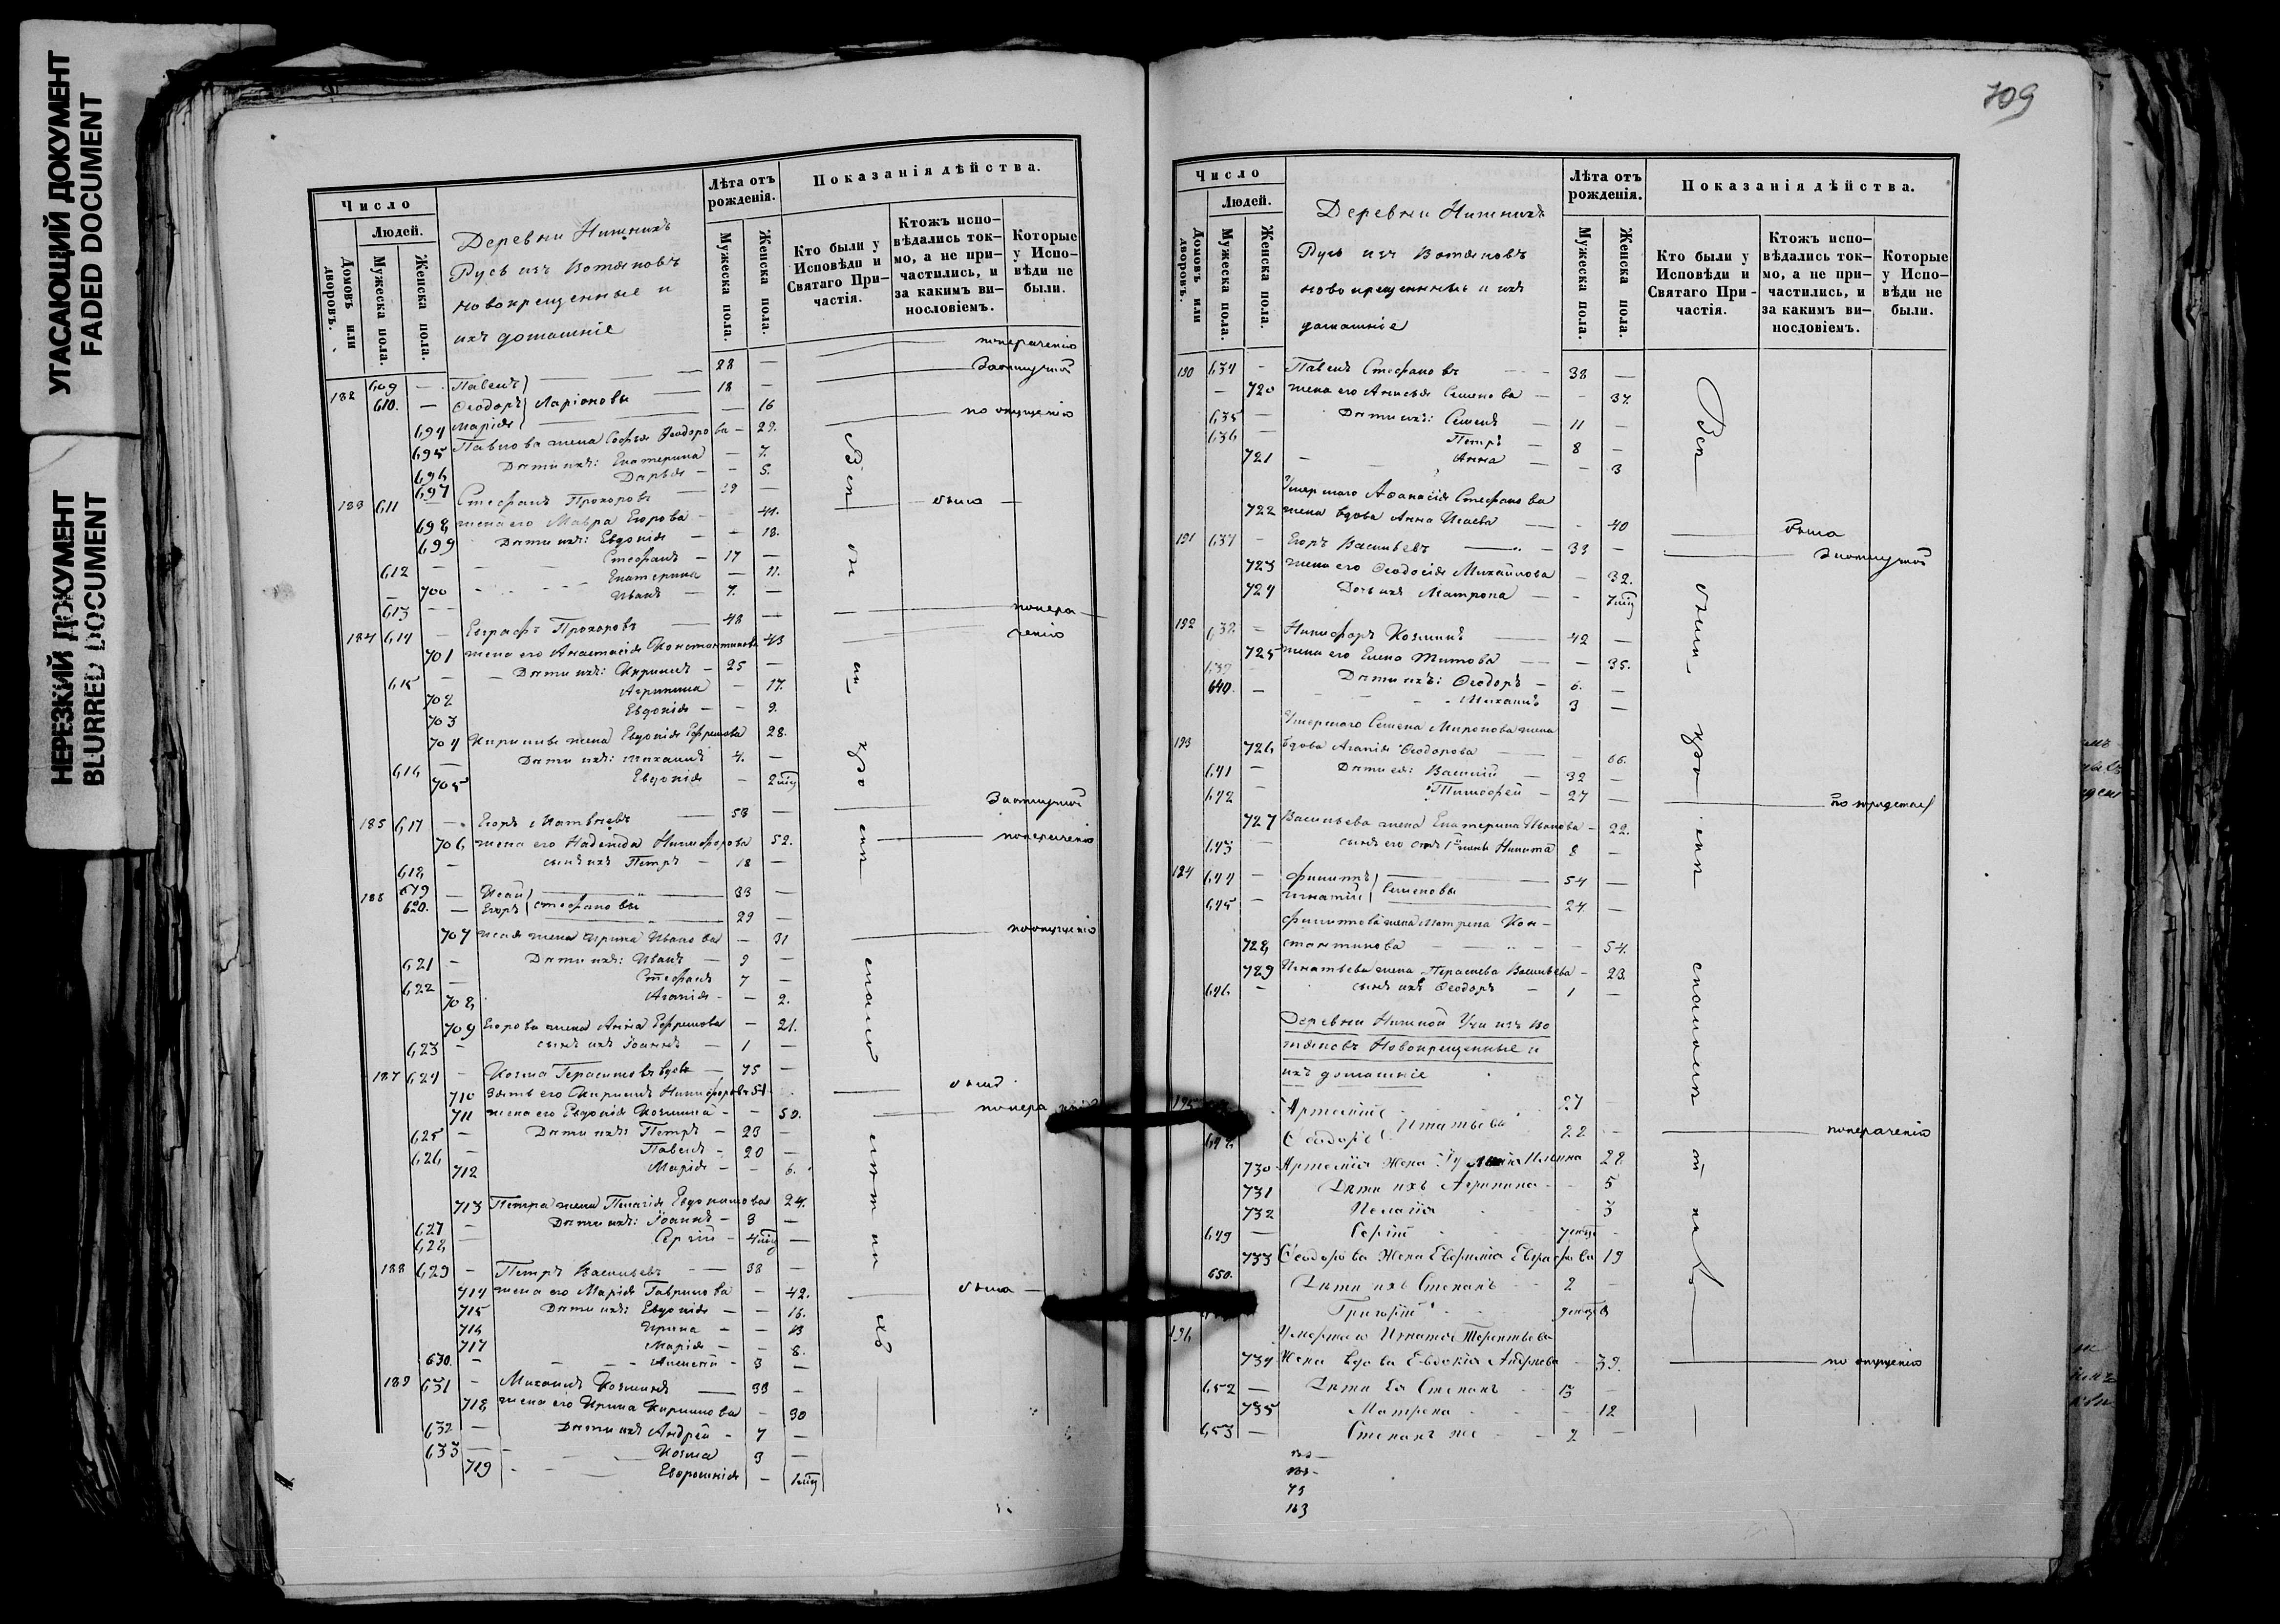 УГАСАЮЩИЙ ДОКУМЕНТ
FADED DOCUMENT
НЕРЕЗКИЙ ДОКУМЕНТ
BLURRED DOCUMENT
Число
Людей.
Домовъ или дворовъ.
Мужеска пола.
Женска пола.
Деревни Нижнихъ
Русь изъ Вотяковъ
новокрещенные и
ихъ домашніе
Лѣта отъ рожденія.
Мужеска пола.
Женска пола.
Показанія дѣйства.
Кто были у Исповѣди и Святаго Причастія.
Ктожъ исповѣдались токмо, а не причастились, и за какимъ винословіемъ.
Которые у Исповѣди не были.
182 609 — Павелъ 28 —
610. — Ѳеодоръ Ларіоновы 18 —
694 Марія — 16 по опущенію
695 Павлова жена Софья Ѳеодорова — 29.
696 Дѣти ихъ: Екатерина — 7.
697 Дарья — 5.
183 611 Стефанъ Прохоровъ 39 —
698 жена его Мавра Егорова — 41. была
699 Дѣти ихъ: Евдокія — 18.
612 — Стефанъ — 17 —
700 Екатерина — 11.
613 Иванъ — 7. —
184 614 — Евграфъ Прохоровъ 48 —
701 жена его Анастасія Константинова 43
615 — Дѣти ихъ: Кирилъ — 25 —
702 Агрипина — 17.
703 Евдокія — 9.
704 Кирилы жена Евдокія Ефремова 28.
616 — Дѣти ихъ: Михаилъ 4. —
705 Евдокія — 2 мѣц
185 617 — Егоръ Матвѣевъ 53 —
706 жена его Надежда Никифорова 52.
618 — сынъ ихъ Петръ — 18 —
186 619 — Исай 33 —
620. — Егоръ Стефановы 29 —
707 Исая жена Ирина Иванова — 31 по опущенію
621 — Дѣти ихъ: Иванъ — 9 —
622 — Стефанъ 7 —
708 Агапія — 2.
709 Егорова жена Анна Ефремова — 21.
623 — сынъ ихъ Іоаннъ — 1 —
187 624 — Козма Герасимовъ вдовъ — 75 —
710 Зять его Кирилъ Никифоровъ 51
711 жена его Евдокія Козмина — 50.
625 — Дѣти ихъ: Петръ — 23 —
626 — Павелъ — 20 —
712 Марія — 6.
713 Петра жена Пелагія Евдокимова 24.
627 — Дѣти ихъ: Іоаннъ — 3 —
628 — Сергій — 4 мѣц —
188 629 — Петръ Васильевъ 38 —
714 жена его Марія Гаврилова — 42. была —
715 Дѣти ихъ: Евдокія — 16.
716 Ирина — 13
717 Марія — 8.
630. — Алексѣй — 3 —
189 631 — Михаилъ Козминъ 33 —
718 жена его Ирина Кирилова — 30
632 — Дѣти ихъ Андрей — 7 —
633 — Козма 3 —
719 Евфросинія — 1 мѣц
709
Число
Людей.
Домовъ или дворовъ.
Мужеска пола.
Женска пола.
Деревни Нижнихъ
Русь изъ Вотяковъ
новокрещенные и ихъ
домашніе
Лѣта отъ рожденія.
Мужеска пола.
Женска пола.
Показанія дѣйства.
Кто были у Исповѣди и Святаго Причастія.
Ктожъ исповѣдались токмо, а не причастились, и за какимъ винословіемъ.
Которые у Исповѣди не были.
190 634 — Павелъ Стефановъ 38 —
— 720 жена его Анисья Семенова — 37.
635 — Дѣти ихъ: Семенъ — 11 —
636 — Петръ 8 —
721 — Анна — 3
Умершаго Аѳанасія Стефанова
722 жена вдова Анна Исаева — 40 была
191 637 — Егоръ Васильевъ — 33 —
723 жена его Ѳеодосія Михайлова — 32.
724 Дочь ихъ Матрона — 7 мѣц
192 638 — Никифоръ Козминъ 42 —
725 жена его Елена Титова — 35.
639 Дѣти ихъ: Ѳеодоръ — 6. —
640. — Михаилъ 3 —
Умершаго Семена Миронова жена
193 726 вдова Агапія Ѳеодорова — 66.
641 — Дѣти ея: Василій — 32 —
642 — Тимофей — 27 —
727 Васильева жена Екатерина Иванова — 22.
643 — сынъ его отъ 1й жены Никита 8 —
194 644 — Филипъ 54 —
645 — Игнатій Семеновы 24. —
Филипова жена Матрена Кон-
728 стантинова — 54.
729 Игнатьева жена Парасковья Васильева — 23.
646 — сынъ ихъ Ѳеодоръ — 1 —
Деревни Нижной Учи изъ Во
тяковъ Новокрещенные и
ихъ домашніе
195 Артемій 27
648 Ѳеодоръ Игнатьевы 22 —
730 Артемія жена Ильина 28
731 Дѣти ихъ Агрипина — 5
732 Пелагія 3
649 — Сергій
733 Ѳеодорова жена Евфимія Евграфова 19
650. Дѣти ихъ Степанъ 2 —
Григорій
196 Умершаго Игнатія Терентьева
734 Жена вдова Евдокія Андреева — 39. по опущенію
652 — Дѣти Ея Степанъ 13 —
735 Матрена — 12
653 — Степанъ же — 2 —
73
163